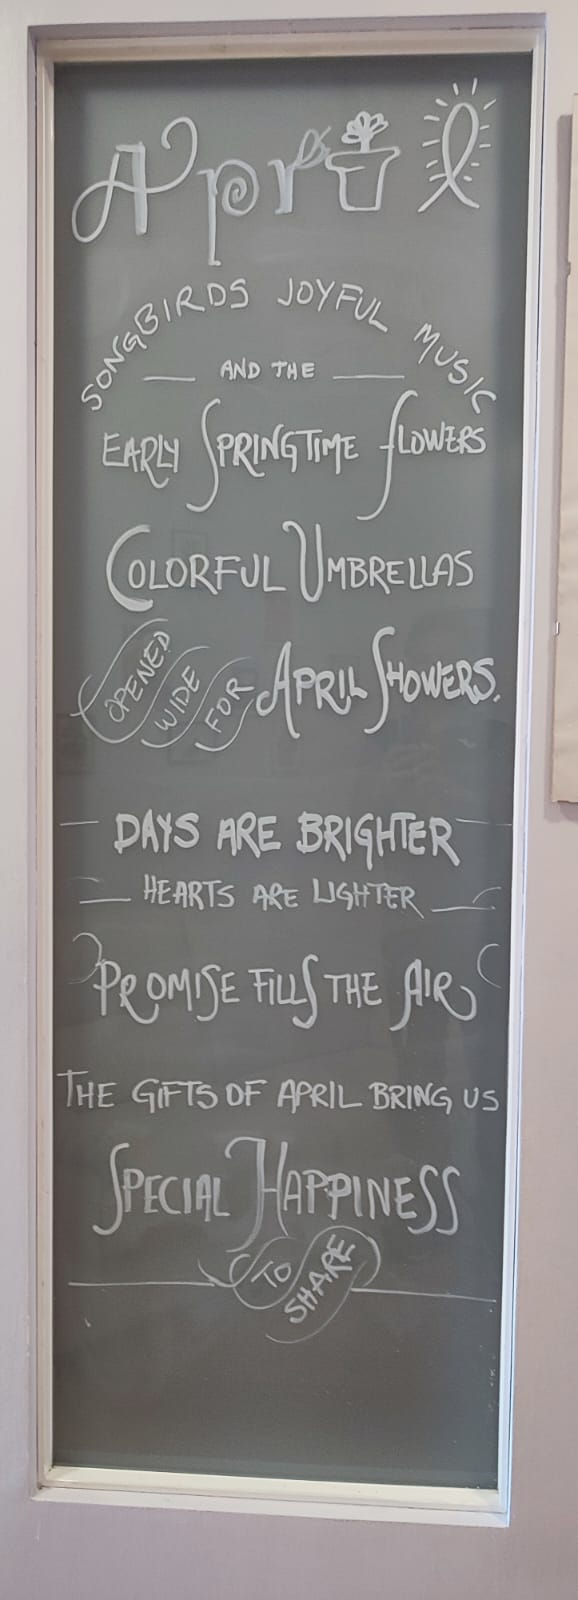 April
SONGBIRDS JOYFUL MUSIC
AND THE
EARLY SPRINGTIME FLOWERS
COLORFUL UMBRELLAS
OPENED WIDE FOR APRIL SHOWERS.
DAYS ARE BRIGHTER
HEARTS ARE LIGHTER
PROMISE FILLS THE AIR
THE GIFTS OF APRIL BRING US
SPECIAL HAPPINESS
TO SHARE